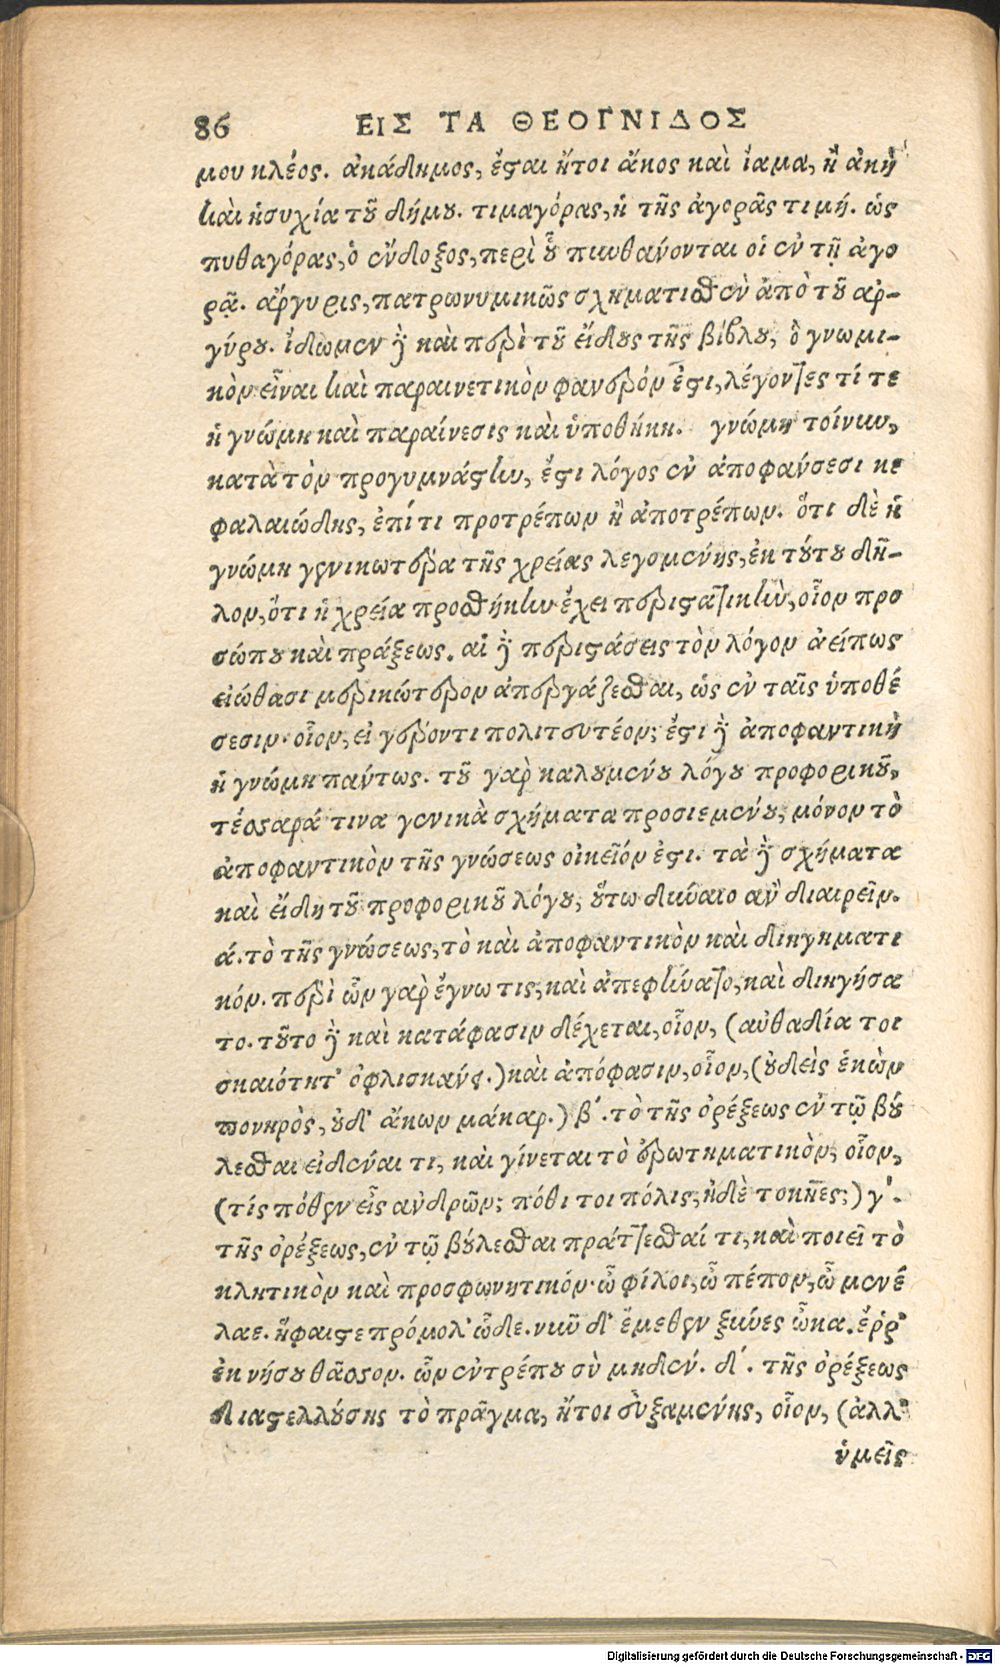 86 ΕΙΣ ΤΑ ΘΕΟΓΝΙΔΟΣ
μου κλέος. ἀκάδημος, ἔςαι ἤτοι ἄκος καὶ ἴαμα, ἢ ἀκὴ
καὶ ἡσυχία τοῦ δήμου. τιμαγόρας, ἡ τῆς ἀγορᾶς τιμή. ὡς
πυθαγόρας, ὁ ἔνδοξος, περὶ οὗ πυνθάνονται οἱ ἐν τῇ ἀγο
ρᾷ. ἄργυρις, πατρωνυμικῶς σχηματισθὲν ἀπὸ τοῦ αρ-
γύρου. ἴδωμεν δὲ καὶ περὶ τοῦ εἴδους τῆς βίβλου, ὃ γνωμι-
κὸν εἶναι καὶ παραινετικὸν φανερόν ἐςι, λέγοντες τί τε
ἡ γνώμη καὶ παραίνεσις καὶ ὑποθήκη. γνώμη τοίνυν,
κατὰ τὸν προγυμνάςην, ἔςι λόγος ἐν ἀποφάνσεσι κε
φαλαιώδης, ἐπί τι προτρέπων ἢ ἀποτρέπων. ὅτι δὲ ἡ
γνώμη γενικωτέρα τῆς χρείας λεγομένης, ἐκ τούτου δῆ-
λον, ὅτι ἡ χρεία προσθήκην ἔχει περιςατικὴν, οἷον προ
σώπου καὶ πράξεως. αἱ δὲ περιςάσεις τὸν λόγον ἀείπως
εἰώθασι μερικώτερον ἀπεργάζεσθαι, ὡς ἐν ταῖς ὑποθέ
σεσιν. οἷον, εἰ γέροντι πολιτευτέον; ἔςι δὲ ἀποφαντικὴ
ἡ γνώμη πάντως. τοῦ γὰρ καλουμένου λόγου προφορικοῦ,
τέσσαρά τινα γενικὰ σχήματα προσιεμένου, μόνον τὸ
ἀποφαντικὸν τῆς γνώσεως οἰκεῖόν ἐςι. τὰ δὲ σχήματα
καὶ εἴδη τοῦ προφορικοῦ λόγου, οὕτω δύναιο ἂν διαιρεῖν.
ά. τὸ τῆς γνώσεως, τὸ καὶ ἀποφαντικὸν καὶ διηγηματι
κόν. περὶ ὧν γὰρ ἔγνω τις, καὶ ἀπεφήνατο, καὶ διηγήσα
το. τοῦτο δὲ καὶ κατάφασιν δέχεται, οἷον, (αὐθαδία τοι
σκαιότητ' ὀφλισκάνει.) καὶ ἀπόφασιν, οἷον, (οὐδεὶς ἑκὼν
πονηρὸς, οὐδ' ἄκων μάκαρ.) β'. τὸ τῆς ὀρέξεως ἐν τῷ βού
λεσθαι εἰδέναι τι, καὶ γίνεται τὸ ἐρωτηματικὸν, οἷον,
(τίς πόθεν εἶς ανδρῶν; πόθι τοι πόλις, ἠδὲ τοκῆες;) γ'.
τῆς ὀρέξεως, ἐν τῷ βούλεσθαι πράττεσθαί τι, καὶ ποιεῖ τὸ
κλητικὸν καὶ προσφωνητικόν. ὦ φίλοι, ὦ πέπον, ὦ μενέ
λαε. ἥφαιςε πρόμολ' ὧδε. νῦν δ' ἔμεθεν ξύνες ὦκα. ἔῤῥ'
ἐκ νήσου θᾶσσον. ὧν ἐντρέπου σὺ μηδέν. δ'. τῆς ὀρέξεως
διαςελλούσης τὸ πρᾶγμα, ἤτοι εὐξαμένης, οἷον, (ἀλλ'
ὑμεῖς
Digitalisierung gefördert durch die Deutsche Forschungsgemeinschaft - DFG